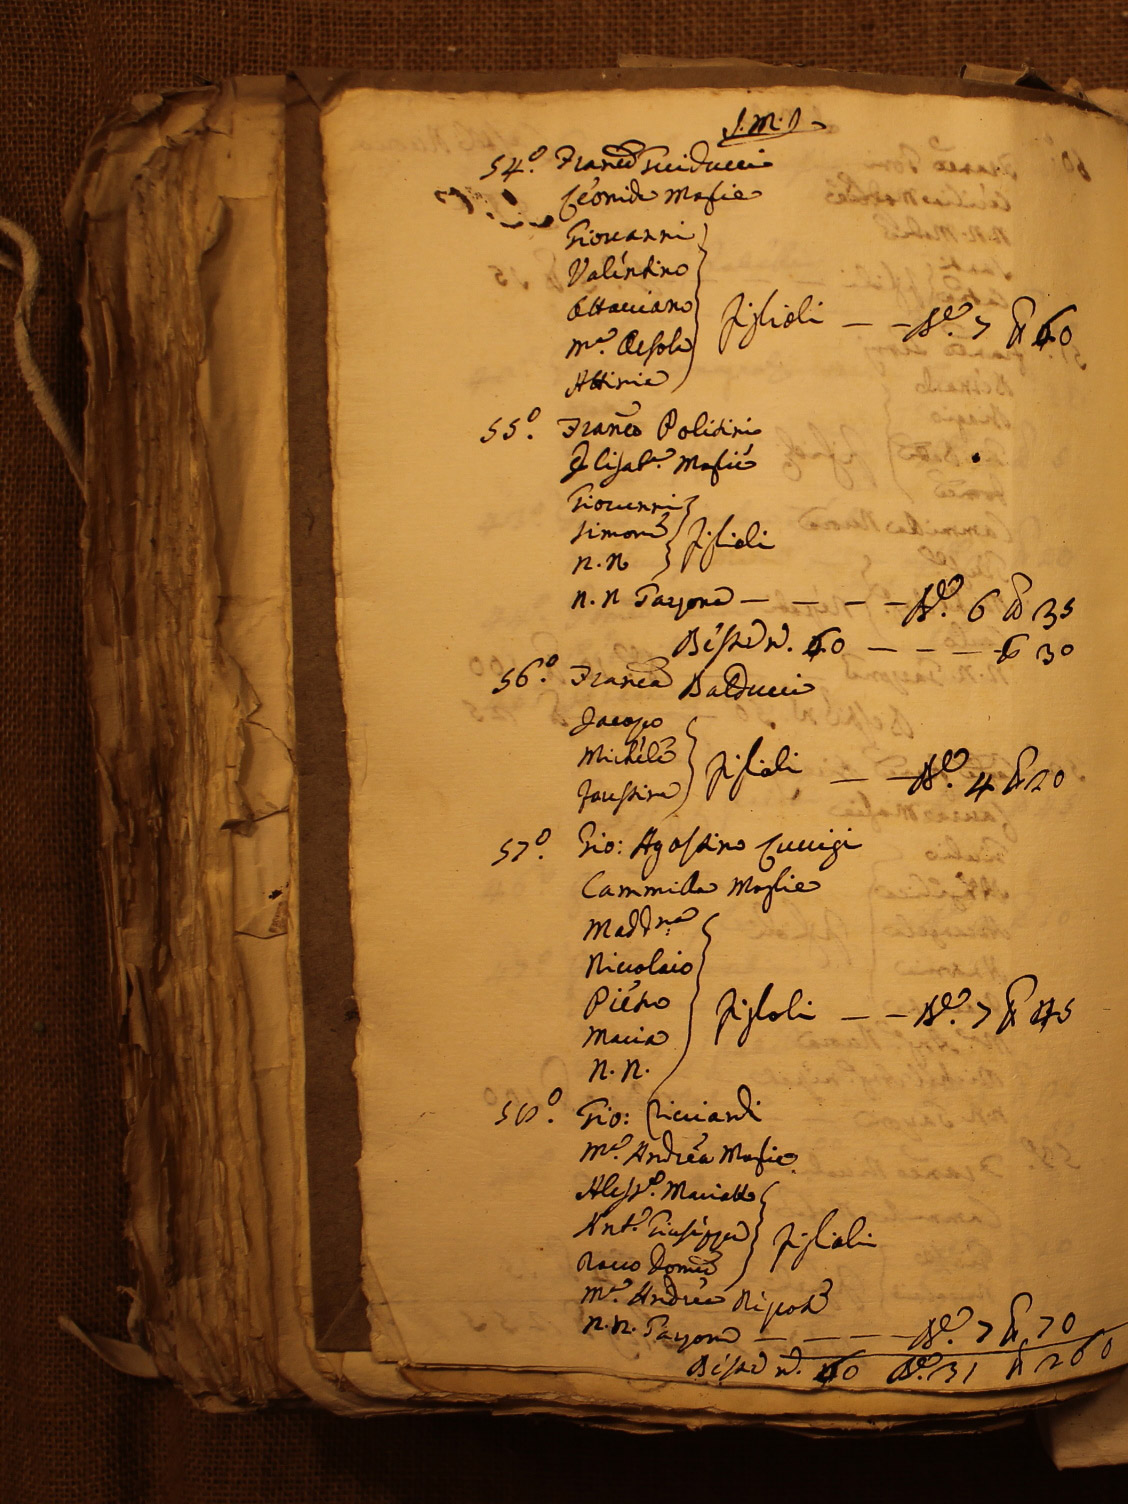 J. M. J.
54.º Franc.º Guiducci
Leonida Moglie
Giovanni
Valentino
Ottaviano
M.ª Orsola
Attinia
figlioli — — N.º 7 60
55.º Franc.º Polidini
Elisab.ª Moglie
Giovanni
Simone
N. N.
figlioli
N. N. Garzone — — — — N.º 6 35
Bestie N. 60 — — — 6 30
56.º Franc.º Balducci
Jacopo
Michele
Faustina
figlioli — — N.º 4 20
57.º Gio: Agostino Cuccigi
Cammilla Moglie
Madd.na
Niccolaio
Pietro
Maria
N. N.
figlioli — — N.º 7 45
58.º Gio: Ricciardi
M.ª Andrea Moglie
Aless.º Mariotto
Ant.º Giuseppe
Rocco Dom.co
figlioli
M.ª Andrea Nipote
N. N. Garzone — — — — N.º 7 70
Bestie N. 40 N.º 31 260